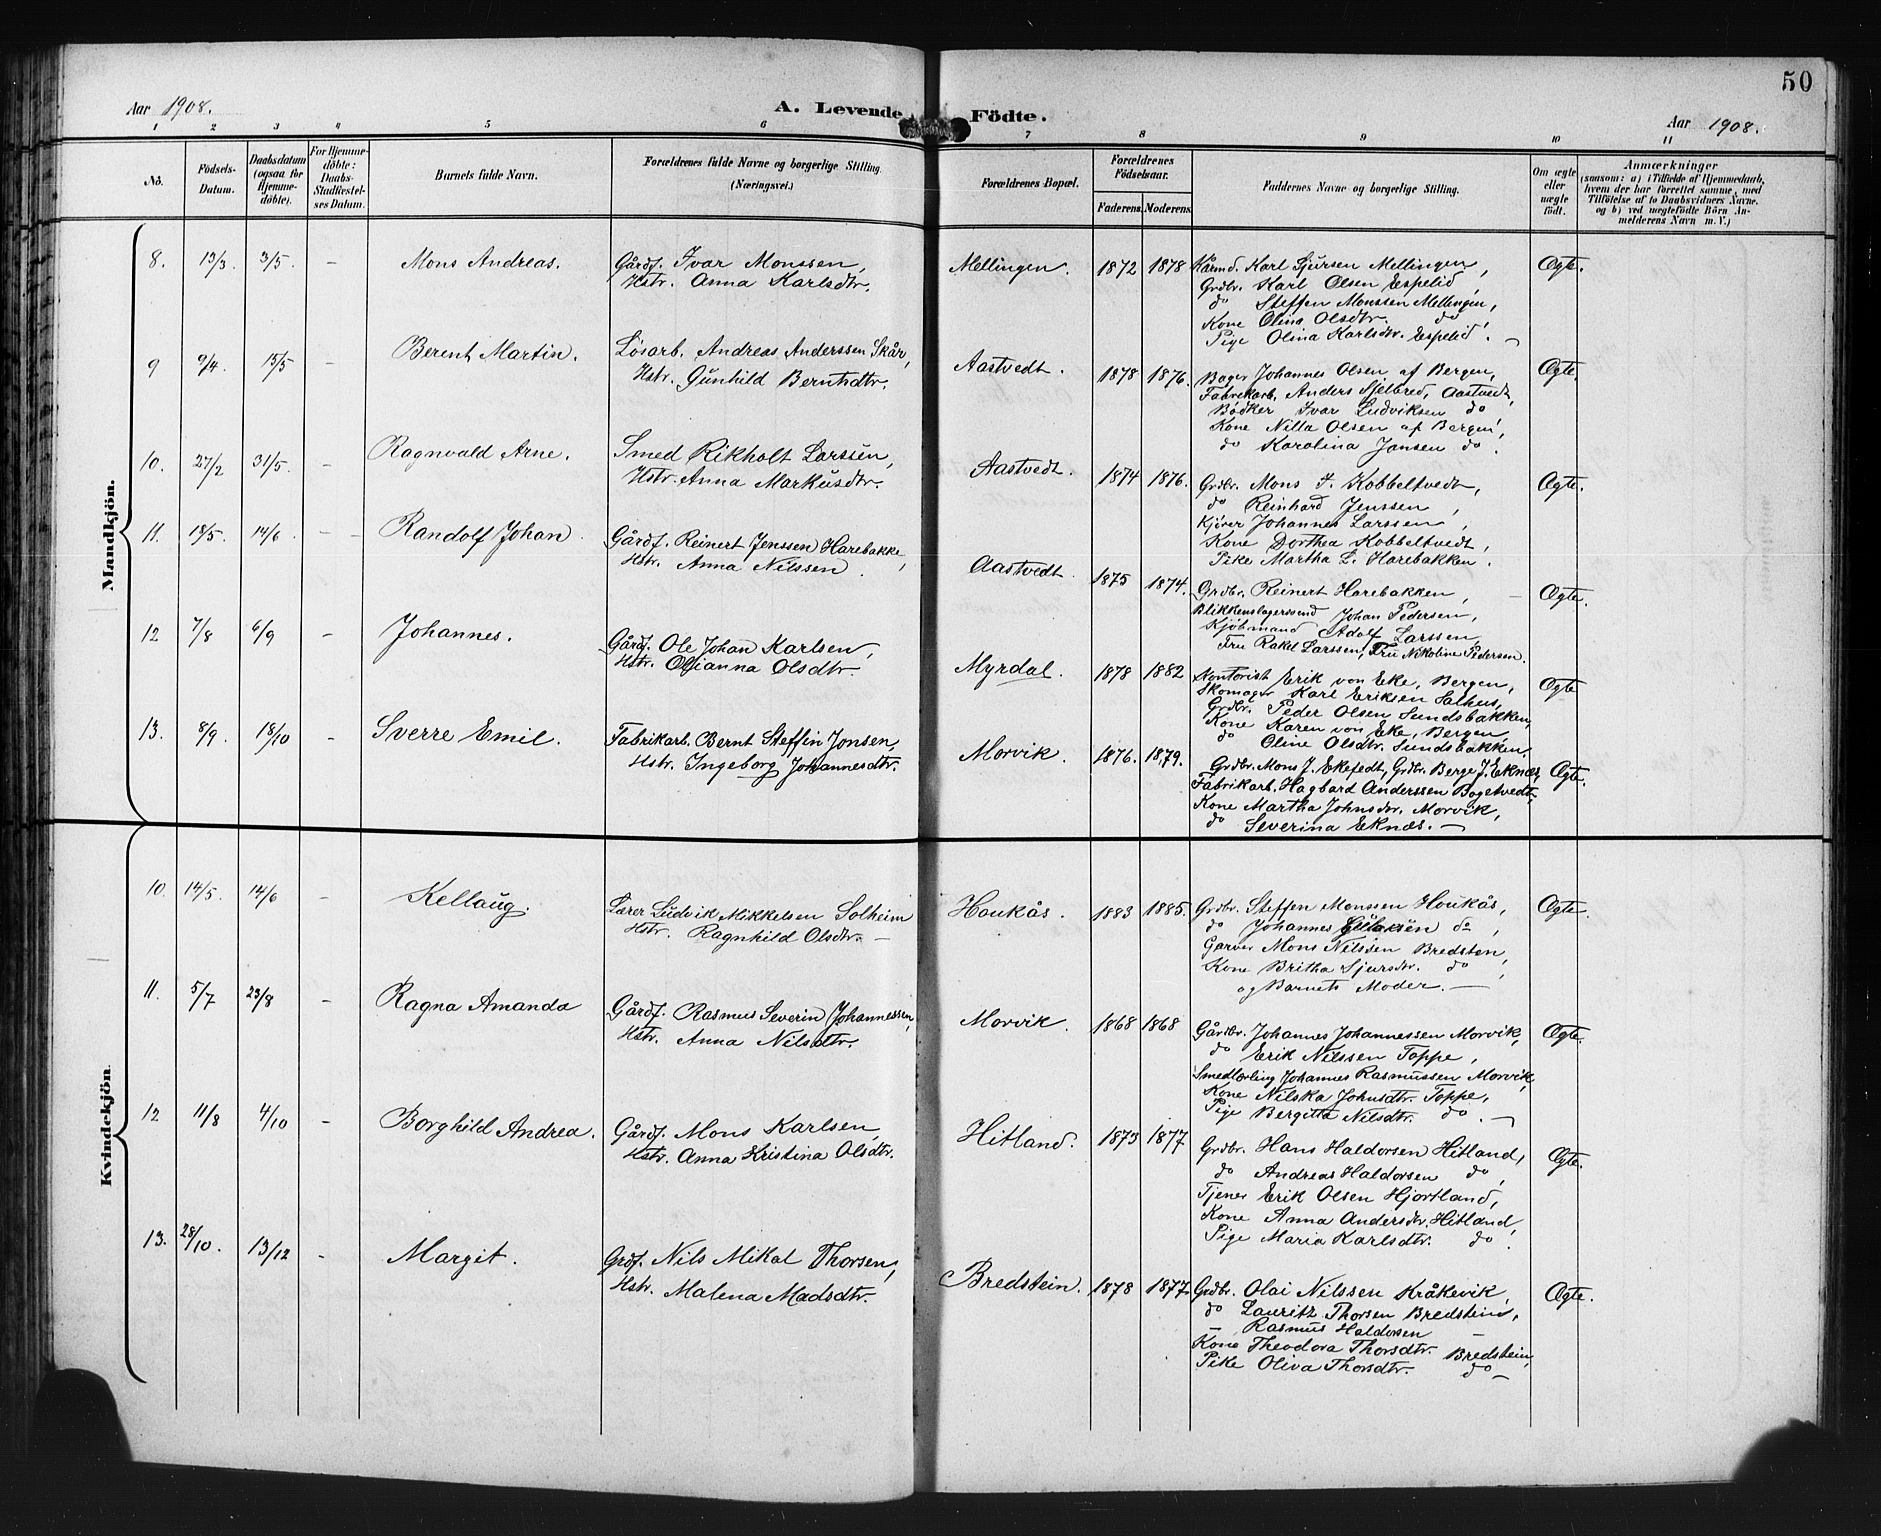 50
Aar 1908.
A. Levende Födte.
Aar 1908.
1 2 3 4 5 6 7 8 9 10 11
No.
Födsels-Datum.
Daabsdatum (ogsaa for Hjemme-döbte).
For Hjemme-döbte: Daabs-Stadfæstel-ses Datum.
Barnets fulde Navn.
Forældrenes fulde Navne og borgerlige Stilling.
(Næringsvei.)
Forældrenes Bopæl.
Forældrenes Födselsaar.
Faderens. Moderens.
Faddernes Navne og borgerlige Stilling.
Om ægte eller uægte födt.
Anmærkninger
(saasom: a) i Tilfælde af Hjemmedaab,
hvem der har forrettet samme, med
Tilföielse af to Daabsvidners Navne.
og b) ved uægtefödte Börn An-
melderens Navn m.V.)
Mandkjön.
8. 13/3. 3/5. - Mons Andreas. Gårdf. Ivar Monssen, Mellingen. 1872 1878 Kårmd. Karl Sjursen Mellingen, Ægte.
Hstr. Anna Karlsdtr. Grdbr. Karl Olsen Espelid,
do Steffen Monssen Mellingen,
Kone Olina Olsdtr. do,
Pige Olina Karlsdtr. Espelid. -
9 9/4. 15/5 - Berent Martin. Løsarb. Andreas Anderssen Skår, Aastvedt. 1878 1876. Bager Johannes Olsen af Bergen, Ægte.
Hstr. Gunhild Berntsdtr. Fabrikarb. Anders Hjelbred, Aastvedt,
Bødker Ivar Ludviksen do
Kone Nilla Olsen af Bergen,
do Karolina Jansen do.
10. 27/2 31/5. - Ragnvald Arne. Smed Rikholt Larssen, Aastvedt. 1874 1876. Grdbr. Mons J. Kobbeltvedt, Ægte.
Hstr. Anna Markusdtr. do Reinhard Jenssen,
Kjører Johannes Larssen,
Kone Dorthea Kobbeltvedt,
Pike Martha L. Harebakken.
11. 18/5. 14/6. - Randolf Johan. Gårdf. Reinert Jenssen Harebakke, Aastvedt. 1875 1874. Grdbr. Reinert Harebakken, - Ægte.
Hstr. Anna Nilssen. Blikkenslagersvend Johan Pedersen,
Kjøbmand Adolf Larssen,
Fru Rakel Larssen, Fru Nikoline Pedersen.
12 7/8 6/9 - Johannes. Gårdf. Ole Johan Karlsen, Myrdal. 1878 1882 Kontorist Erik von Eke, Bergen, Ægte
Hstr. Olianna Olsdtr. Skomager Karl Eriksen Salhus,
Grdbr. Peder Olsen Sundsbakken,
Kone Karen von Eke, Bergen,
do Oline Olsdtr. Sundsbakken,
13. 8/9. 18/10 - Sverre Emil. Fabrikarb. Bernt Steffin Jonsen, Morvik. 1876. 1879. Grdbr. Mons J. Ekefedt, Grdbr. Berge J. Eknæs, Ægte.
Hstr. Ingeborg Johannesdtr. Fabrikarb. Hagbard Anderssen Bogetvedt,
Kone Martha Johnsdtr. Morvik,
do Severina Eknæs. -
Kvindekjön.
10. 14/5. 14/6 - Kellaug. Lærer Ludvik Mikkelsen Solheim Houkås. 1883 1885. Grdbr. Steffen Monssen Houkås, Ægte.
Hstr. Ragnhild Olsdtr. - do Johannes do,
Garver Mons Nilssen Bredsten,
Kone Britha Sjursdtr. do,
og Barnets Moder. -
11. 5/7 23/8 - Ragna Amanda Gårdf. Rasmus Severin Johannessen, Morvik. 1868 1868 Gårdbr. Johannes Johannessen Morvik, Ægte.
Hstr. Anna Nilsdtr. do Erik Nilssen Toppe,
Smedlærling Johannes Rasmussen Morvik,
Kone Nilska Johnsdtr. Toppe,
Pige Bergitta Nilsdtr. do. -
12 11/8 4/10 - Borghild Andrea. Gårdf. Mons Karlsen, Hitland. 1873 1877 Grdbr. Hans Haldorsen Hitland, Ægte.
Hstr. Anna Kristina Olsdtr. do Andreas Haldorsen do,
Tjener Erik Olsen Hjortland,
Kone Anna Andersdtr. Hitland,
Pige Maria Karlsdtr. do.
13. 28/10. 13/12 - Margit. Grdf. Nils Mikal Thorsen, Bredstein. 1878 1877. Grdbr. Olai Nilssen Kråkevik, Ægte.
Hstr. Malena Madsdtr. do Lauritz Thorsen Bredstein,
- Rasmus Haldorsen -
Kone Theodora Thorsdtr. Bredstein,
Pike Oliva Thorsdtr. do -